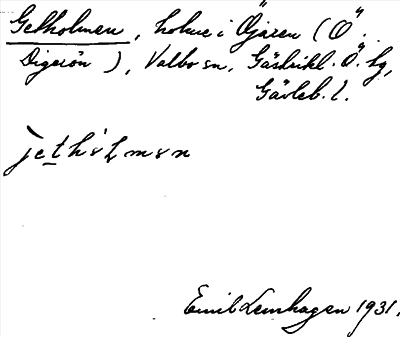 Getholmen, holme i Öjaren (Ö.
Digerön), Valbo sn, Gästrikl. Ö. hg,
Gävleb. l.
jethɷlmən
Emil Lenhagen 1931.